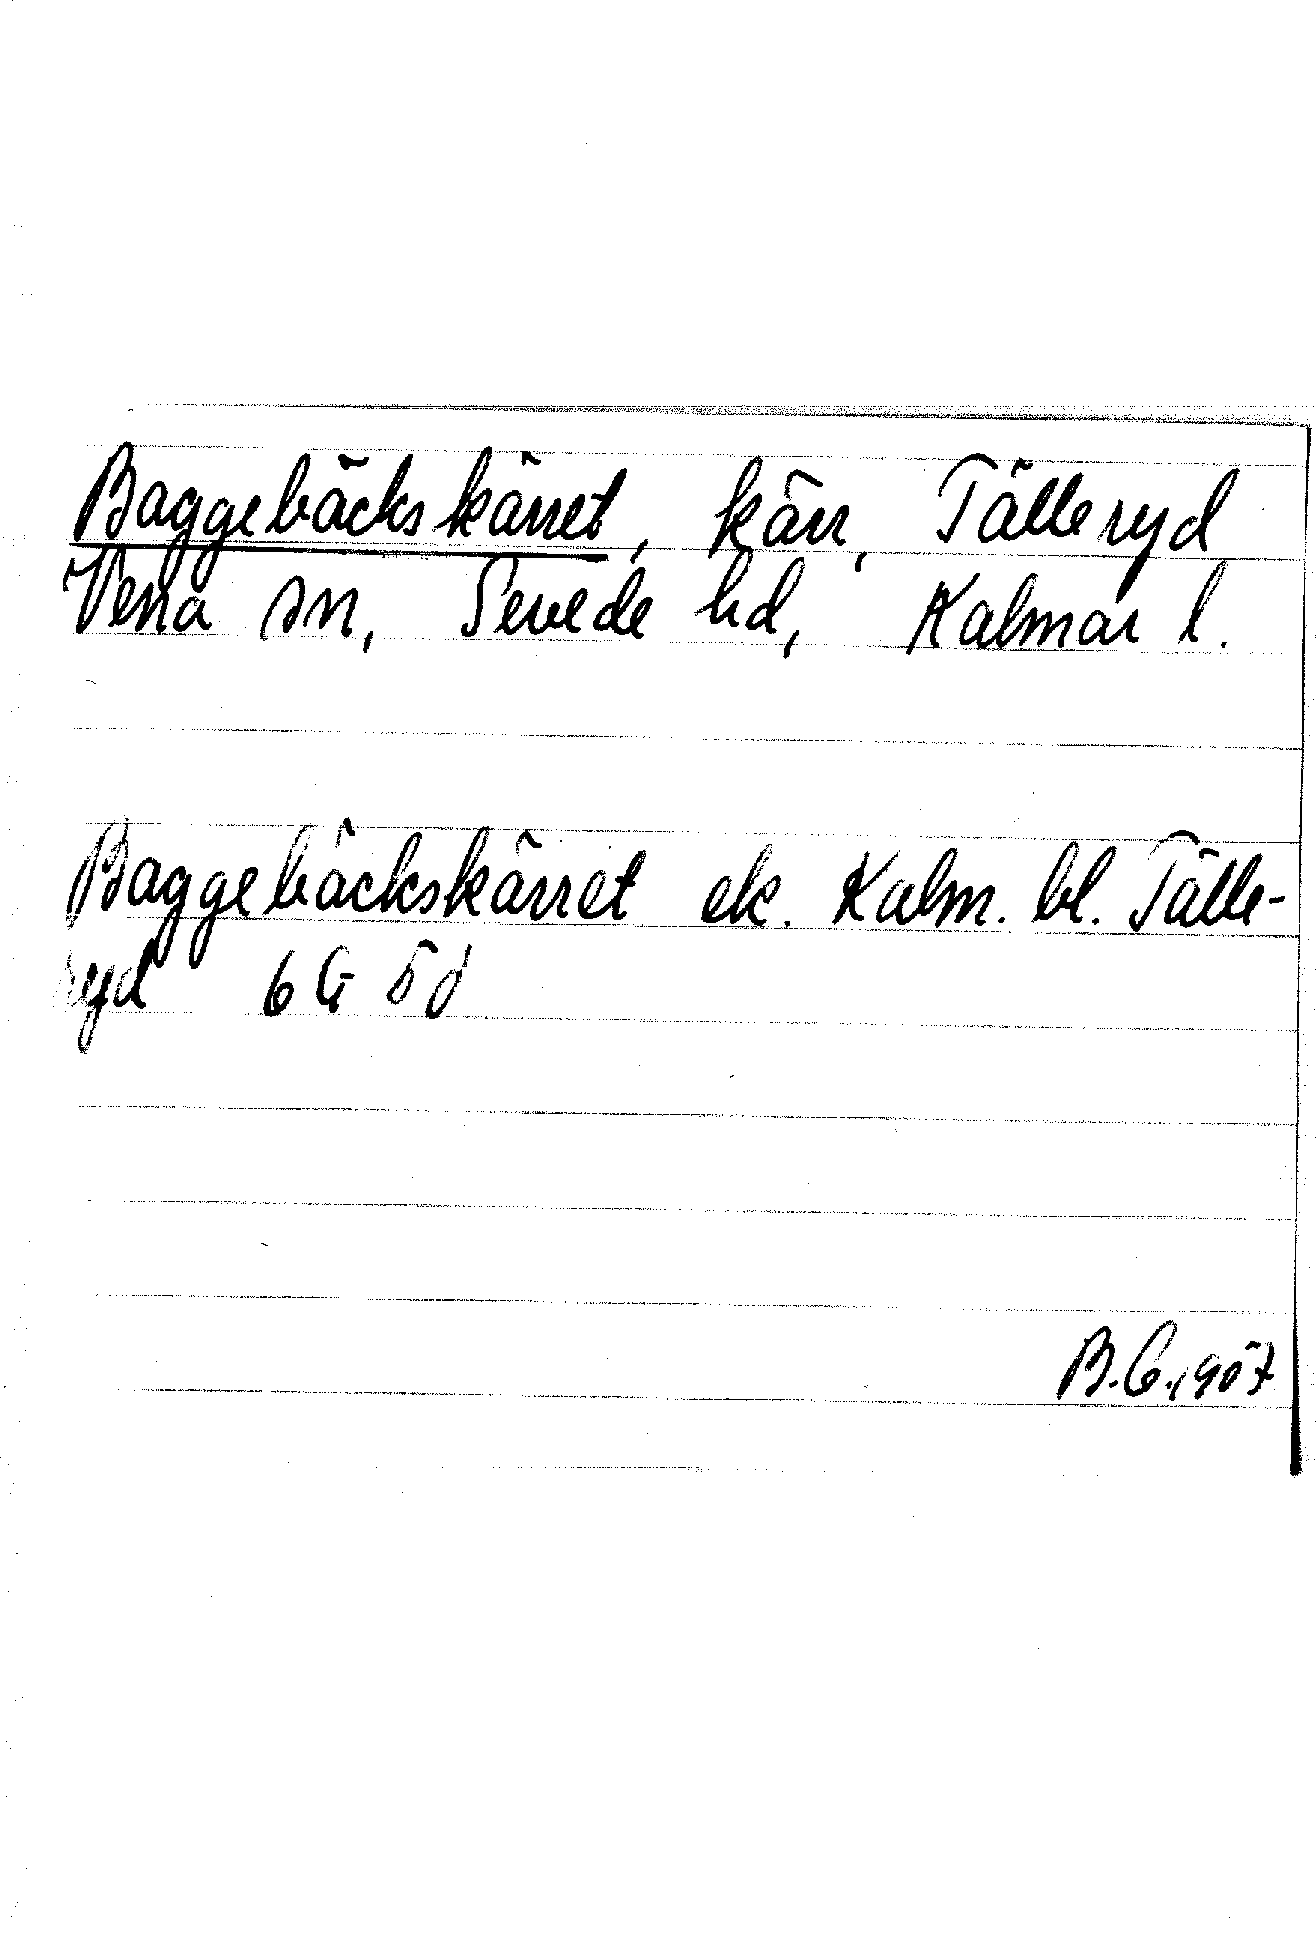 Baggebäckskärret, kärr, Tälleryd
Vena sn, Sevede hd, Kalmar l.
Baggebäckskärret ek. Kalm. bl. Tälle-
ryd 6G 5d
B.G. 1957